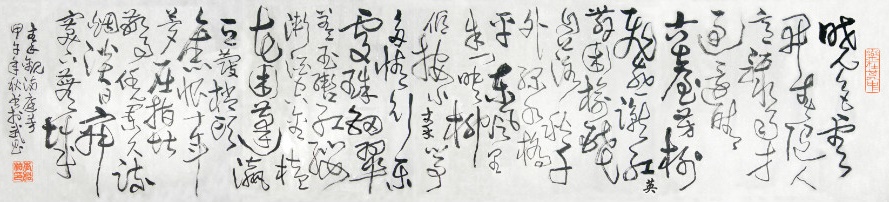 晓色云
开春随人
意骤雨才
过还晴
古台芳榭
飞燕蹴红英
舞困榆钱
自落秋千
外绿水桥
平东风里
朱门映柳
低按小秦筝
多情行乐
处珠钿翠
盖玉辔红缨
渐酒空金榼
花困蓬瀛
豆蔻梢头
旧恨十年
梦屈指堪
惊凭阑久疏
烟淡日寂
寞下芜城
秦观满庭芳
甲午年秋书于